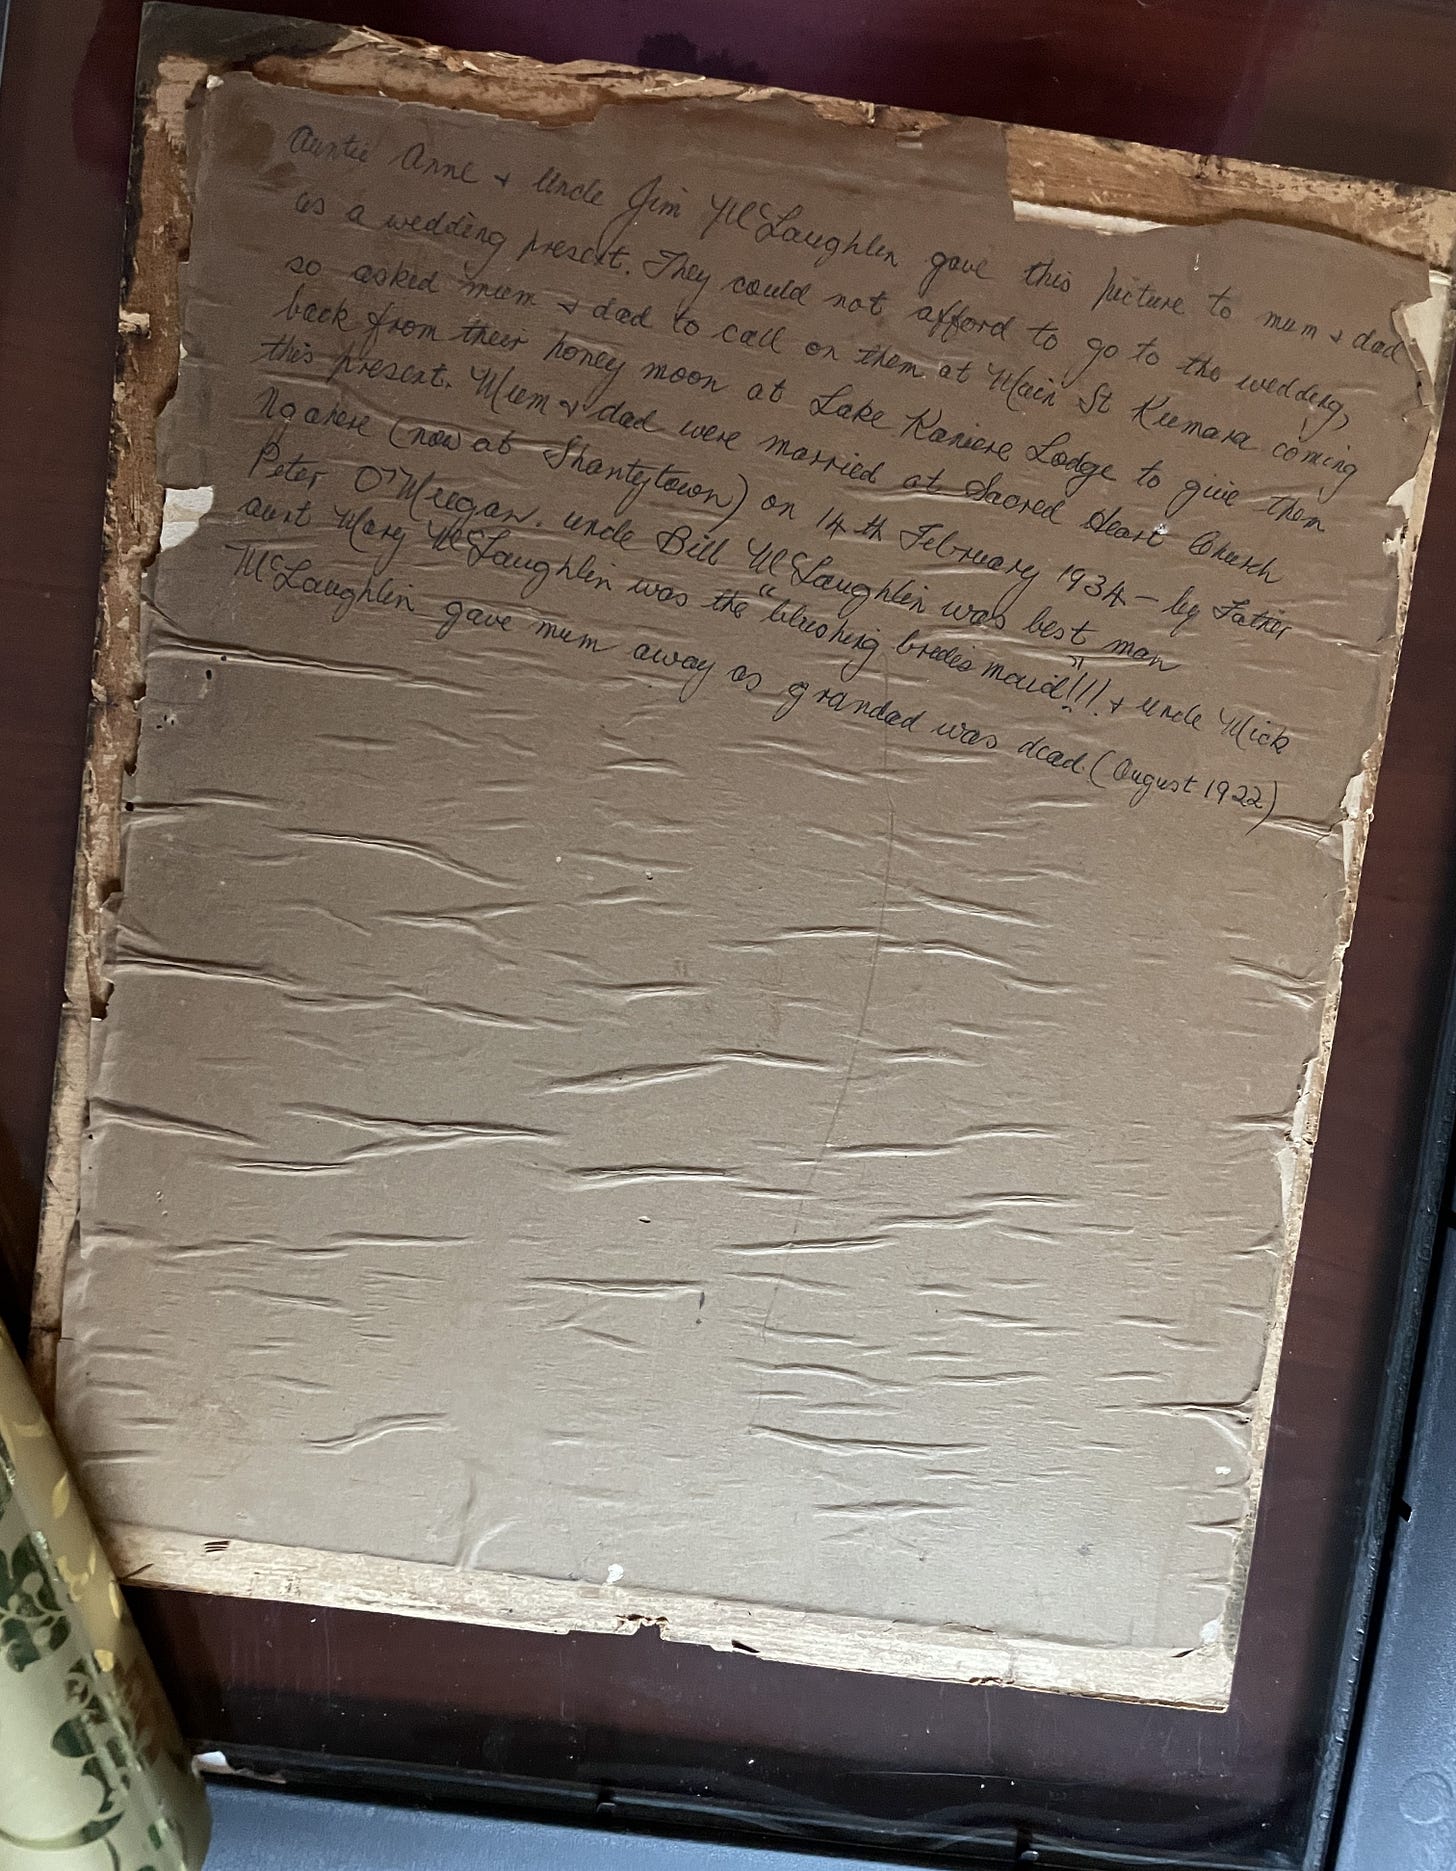 Auntie Anne + Uncle Jim McLaughlin gave this picture to mum + dad
as a wedding present. They could not afford to go to the wedding,
so asked mum + dad to call on them at Main St Kumara coming
back from their honey moon at Lake Kaniere Lodge to give them
this present. Mum + dad were married at Sacred Heart Church
Ngahere (now at Shantytown) on 14th February 1934 - by Father
Peter O'Meegan. uncle Bill McLaughlin was best man
aunt Mary McLaughlin was the "blushing brides maid"!!! + uncle Mick
McLaughlin gave mum away as grandad was dead. (August 1922)